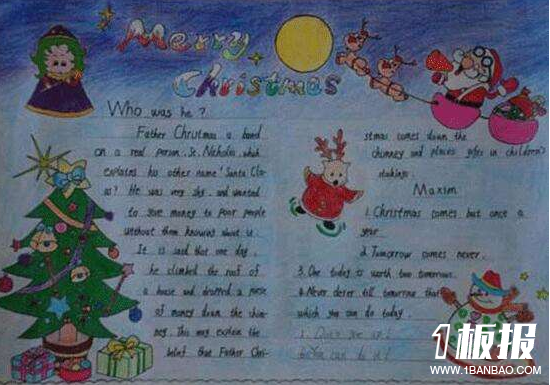 Merry
Christmas
Who was he?
Father Christmas is based
on a real person. St. Nicholas, which
explains his other name 'Santa Cla-
us'? He was very shy and wanted
to give money to poor people
without them knowing about it.
It is said that one day,
he climbed the roof of
a house and dropped a purse
of money down the chim-
ney. This may explain the
belief that Father Chri-
stmas comes down the
chimney and places gifts in children's
stockings.
Maxim
1. Christmas comes but once a
year.
2. Tomorrow comes never.
3. One today is worth two tomorrows.
4. Never defer till tomorrow that
which you can do today.
1板报
WWW.1BANBAO.COM